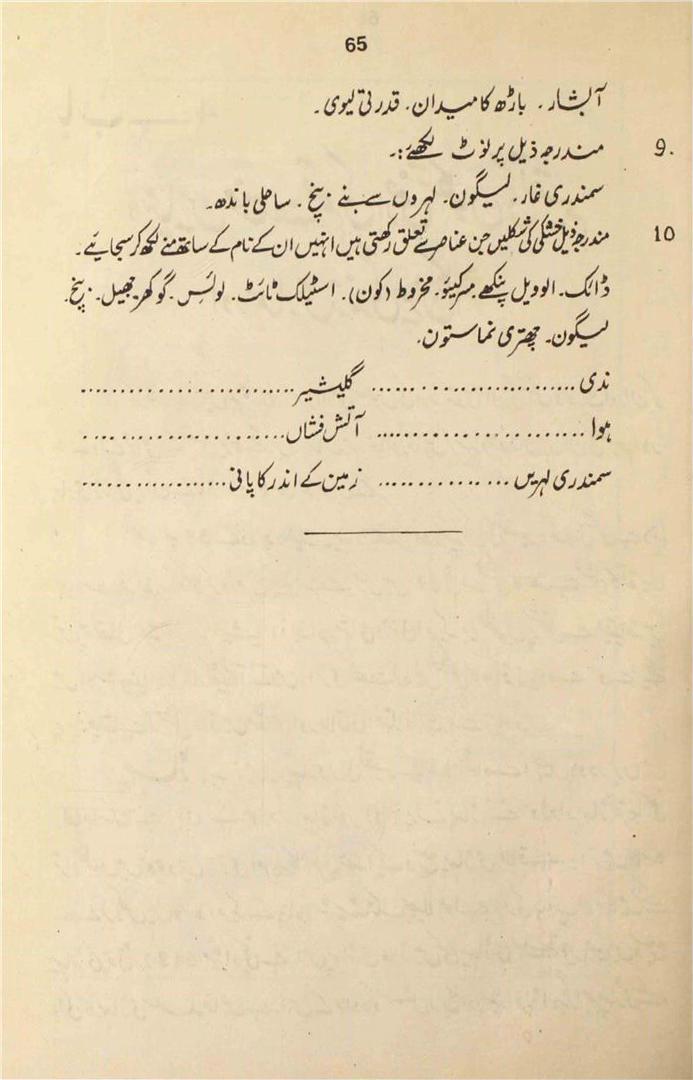 65
آبشار۔ باڑھ کا میدان۔ قدرتی لیوی۔
9. مندرجہ ذیل پر نوٹ لکھئے:۔
سمندری غار۔ لیگون۔ لہروں سے بنے بنچ۔ ساحلی باندھ۔
10 مندرجہ ذیل خشکی کی شکلیں جن عناصر سے تعلق رکھتی ہیں انہیں ان کے نام کے ساتھ منے لکھ کر سجایئے۔
ڈانک۔ الوویل پنکھے۔ سرکیئو۔ مخروط (کون)۔ اسٹیلک ٹائٹ۔ لوئس۔ گوکھر جھیل۔ بنچ۔
لیگون۔ چھتری نما ستون۔
ندی ........................ گلیشیر ........................
ہوا ........................ آتش فشاں ........................
سمندری لہریں ................ زمین کے اندر کا پانی ................